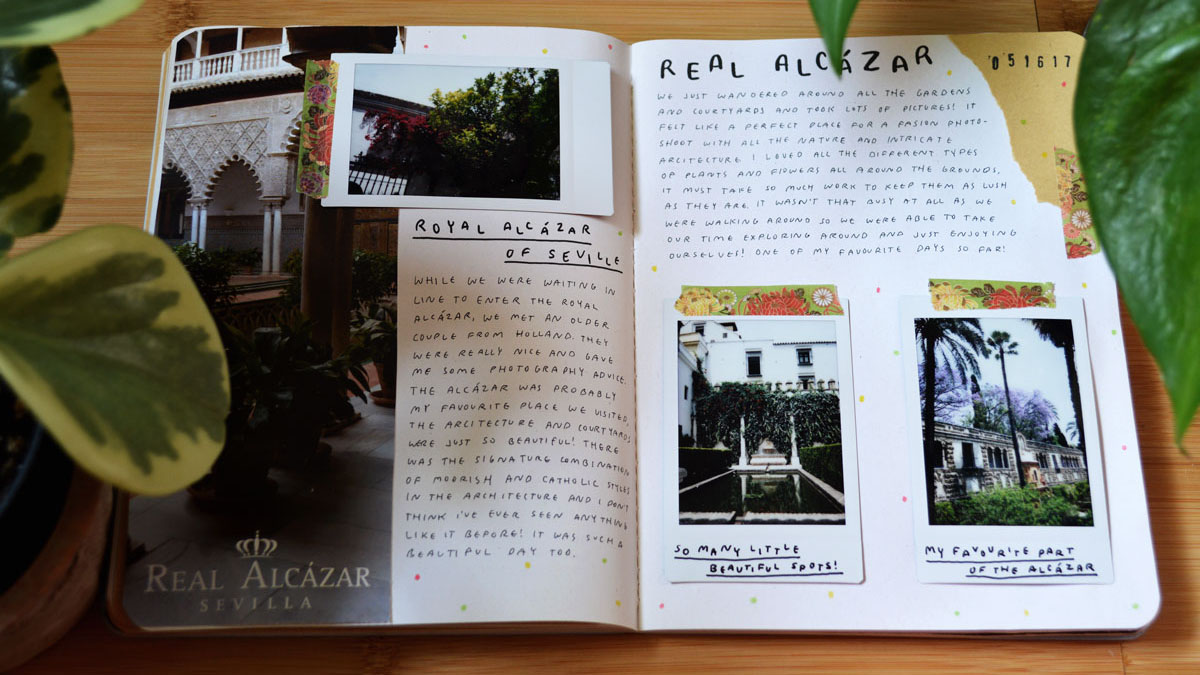 REAL ALCÁZAR
SEVILLA
ROYAL ALCÁZAR
OF SEVILLE
WHILE WE WERE WAITING IN
LINE TO ENTER THE ROYAL
ALCÁZAR, WE MET AN OLDER
COUPLE FROM HOLLAND. THEY
WERE REALLY NICE AND GAVE
ME SOME PHOTOGRAPHY ADVICE.
THE ALCÁZAR WAS PROBABLY
MY FAVOURITE PLACE WE VISITED.
THE ARCITECTURE AND COURTYARDS
WERE JUST SO BEAUTIFUL! THERE
WAS THE SIGNATURE COMBINATION
OF MOORISH AND CATHOLIC STYLES
IN THE ARCHITECTURE AND I DON'T
THINK I'VE EVER SEEN ANYTHING
LIKE IT BEFORE! IT WAS SUCH A
BEAUTIFUL DAY TOO.
REAL ALCÁZAR
051617
WE JUST WANDERED AROUND ALL THE GARDENS
AND COURTYARDS AND TOOK LOTS OF PICTURES! IT
FELT LIKE A PERFECT PLACE FOR A FASION PHOTO-
SHOOT WITH ALL THE NATURE AND INTRICATE
ARCITECTURE. I LOVED ALL THE DIFFERENT TYPES
OF PLANTS AND FLOWERS ALL AROUND THE GROUNDS,
IT MUST TAKE SO MUCH WORK TO KEEP THEM AS LUSH
AS THEY ARE. IT WASN'T THAT BUSY AT ALL AS WE
WERE WALKING AROUND SO WE WERE ABLE TO TAKE
OUR TIME EXPLORING AROUND AND JUST ENJOYING
OURSELVES! ONE OF MY FAVOURITE DAYS SO FAR!
SO MANY LITTLE
BEAUTIFUL SPOTS!
MY FAVOURITE PART
OF THE ALCÁZAR